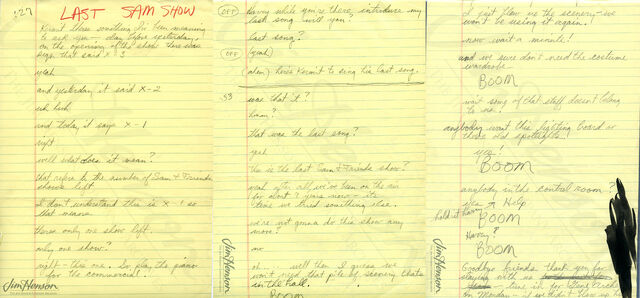 :27
LAST SAM SHOW
Kermit there's something I've been meaning
to ask you — day before yesterday,
on the opening of the show there was
sign that said X-3
yeah
and yesterday it said X-2
uh huh
and today, it says X-1
right
well what does it mean?
that refers to the number of Sam & Friends
shows left
I don't understand this is X-1 so
that means
theres only one show left.
only one show?
right - this one. So play the piano
for the commercial.
Jim Henson
(OFF) Harvey while you're there, introduce my
last song will you?
last song?
(OFF) (yeah)
(ahem) heres Kermit to sing his last song.
:53
was that it?
hmm?
that was the last song?
yeah
this is the last Sam & Friends show?
well after all we've been on the air
for about 7 years now - its
time we tried something else.
we're not gonna do this show any
more?
no
oh... well then I guess we
won't need that pile of scenery thats
in the hall.
BOOM
Jim Henson
I just blew up the scenery - we
won't be using it again!
now wait a minute!
and we sure don't need the costume
wardrobe
BOOM
wait some of that stuff doesn't belong
to us.
anybody want this lighting board or
those old spotlights?
yes!
BOOM
anybody in the control room?
yea - Help
hold it Harvey
BOOM
Harvey?
BOOM
Goodbye friends thank you for
staying with us
- tune in for
on Monday - if we didn't blow up
Jim Henson